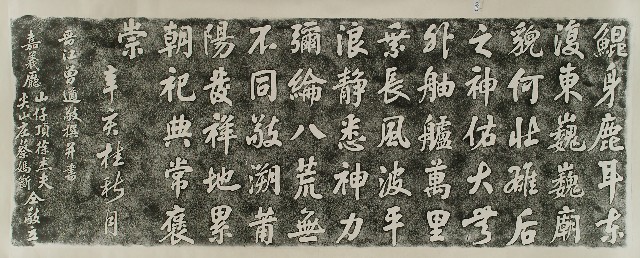 鯤身鹿耳東
復東巍巍廟
貌何壯雄后
之神佑大无
外舳艫萬里
乘長風波平
浪靜悉神力
彌綸八荒無
不同敬溯莆
陽發祥地累
朝祀典常褒
崇
辛亥桂秋月
晉江曾遒敬撰并書
嘉義廳
山仔頂徐杰夫
尖山庄蔡
仝敬立